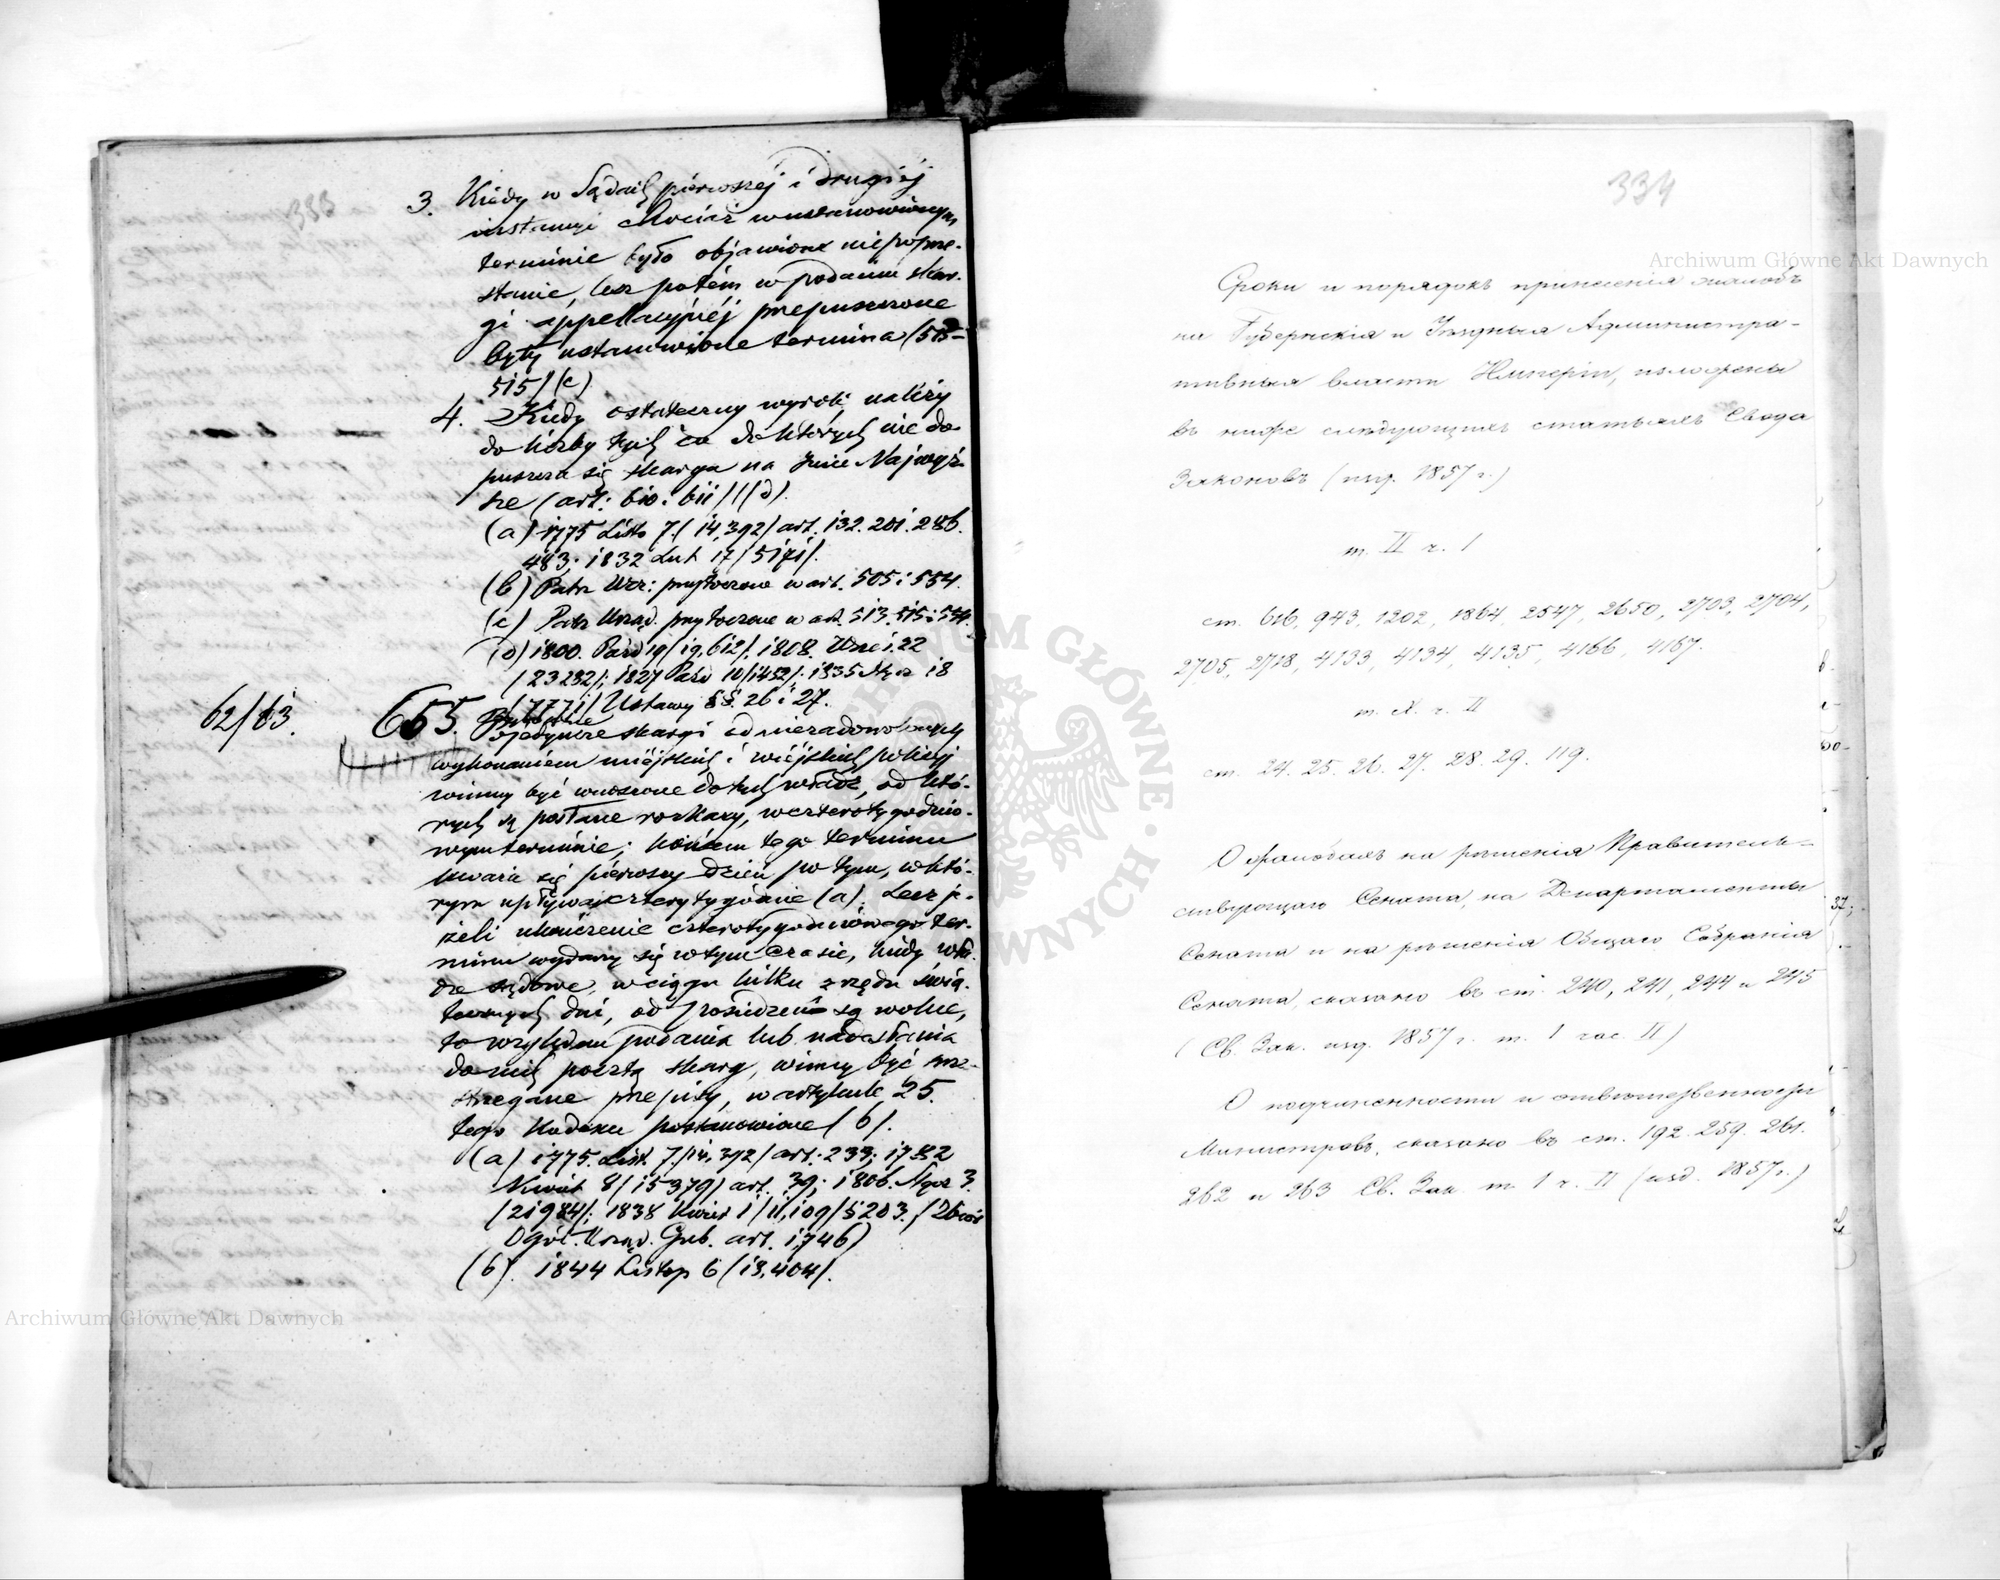 3. Kiedy w Sądach pierwszéj i drugiéj
instancyi chociaż w ustanowionym
terminie było objawione niepoprze-
stanie, lecz potém w podaniu skar-
gi appellacyjnéj przepuszczone
były ustanowione termina (513-
515) (c)
4. Kiedy ostateczny wyrok należy
do liczby tych co do których nie do-
puszcza się skarga na Imie Najwyż-
sze (art: 610. 611) (d).
(a) 1775 Listo 7. (14,392) art. 132. 201. 286.
483; 1832 Lut 17 (5171).
(b) Patrz Urz: przytoczone w art. 505 i 554.
(c) Patrz Urząd. przytoczone w art. 513. 515 i 554.
(d) 1800. Paźd 19 (19,612); 1808. Wrześ. 22
(23282); 1827 Paźd 10 (1452); 1835 18
(7771) Ustawy §§. 26 i 27.
62/63. 655. Pojedyncze skargi od niezadowolonych
wykonaniem miéjskiéj i wiéjskiéj policyi
winny być wnoszone do tych władz, od któ-
rych są posłane rozkazy, w czterotygodnio-
wym terminie; końcem tego terminu
uważa się piérwszy dzień po tym, w któ-
rym upływają cztery tygodnie (a). Lecz je-
żeli ukończenie czterotygodniowego ter-
minu wydarzy się w tym czasie, kiedy wła-
dze sądowe, w ciągu kilku z rzędu świą-
tecznych dni, od posiedzeń są wolne,
to względem podania lub nadesłania
do nich pocztą skarg, winny być prze-
strzegane przepisy, w artykule 25
tego Kodexu postanowione (b).
(a) 1775. List. 7. (14,392) art. 233; 1782
Kwiet 8 (15379) art. 39; 1806. 3.
(21984); 1838 Kwiet 1 (11,109) § 203.
Ogól. Urząd. Gub. art. 1746)
(b). 1844 Listop 6 (18,404).
334
Сроки и порядокъ принесенія жалобъ
на Губернскія и Уѣздныя Администра-
тивныя власти Имперіи, изложены
въ ниже слѣдующихъ статьяхъ Свода
Законовъ (изд. 1857 г.)
т. II ч. I
ст. 616, 943, 1202, 1864, 2547, 2650, 2703, 2704,
2705, 2718, 4133, 4134, 4135, 4166, 4167.
т. X. ч. II
ст. 24. 25. 26. 27. 28. 29. 119.
О жалобахъ на рѣшенія Правитель-
ствующаго Сената, на Департаменты
Сената и на рѣшенія Общаго Собранія
Сената, сказано въ ст. 240, 241, 244 и 245
(Св. Зак. изд. 1857 г. т. I час. II)
О подчиненности и отвѣтственности
Министровъ, сказано въ ст. 192. 259. 261.
262 и 263 Св. Зак. т. I ч. II (изд. 1857 г.)
Archiwum Główne Akt Dawnych
Archiwum Główne Akt Dawnych